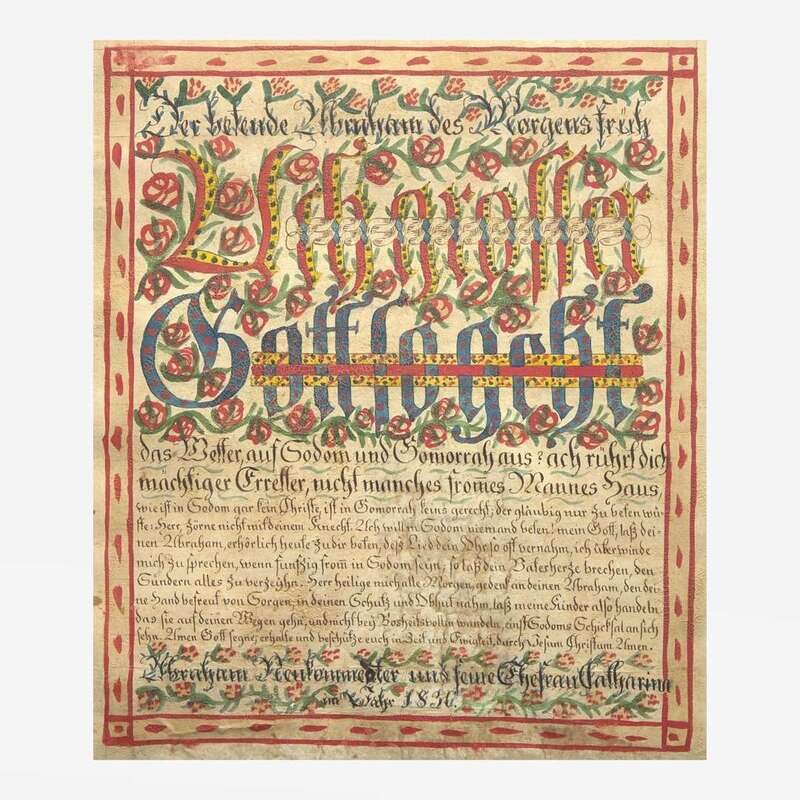 Der betende Abraham des Morgens früh
Ach grosser
Gott so geht
das Wetter, auf Sodom und Gomorrah aus? ach rührt dich
mächtiger Erretter, nicht manches fromes Mannes Haus,
wie ist in Sodom gar kein Christe, ist in Gomorrah keins gerecht, der gläubig nur zu beten wü-
ste: Herr, zorne nicht mit deinem Knecht. Ach will in Sodom niemand beten? mein Gott, laß dei-
nen Abraham, erhörlich heute zu dir beten, deß Lied dein Ohr so oft vernahm, ich überwinde
mich zu sprechen, wenn funfzig from in Sodom sein, so laß dein Vatesherze brechen, den
Sündern alles zu verzeyhn. Herr heilige mich alle Morgen, gedenk an deinen Abraham, den dei-
ne Hand befreut von Sorgen, in deinen Schutz und Obhut nahm, laß meine Kinder also handeln
das sie auf deinen Wegen gehn, und nicht bey Bosheitsvollen wandeln, einst Sodoms Schicksal an sich
sehn. Amen Gott segne, erhalte und beschütze euch in Zeit und Ewigkeit, durch Jesum Christum Amen.
Abraham Neukommedter und seine Ehefrau Catharina
im Jahr 1836.